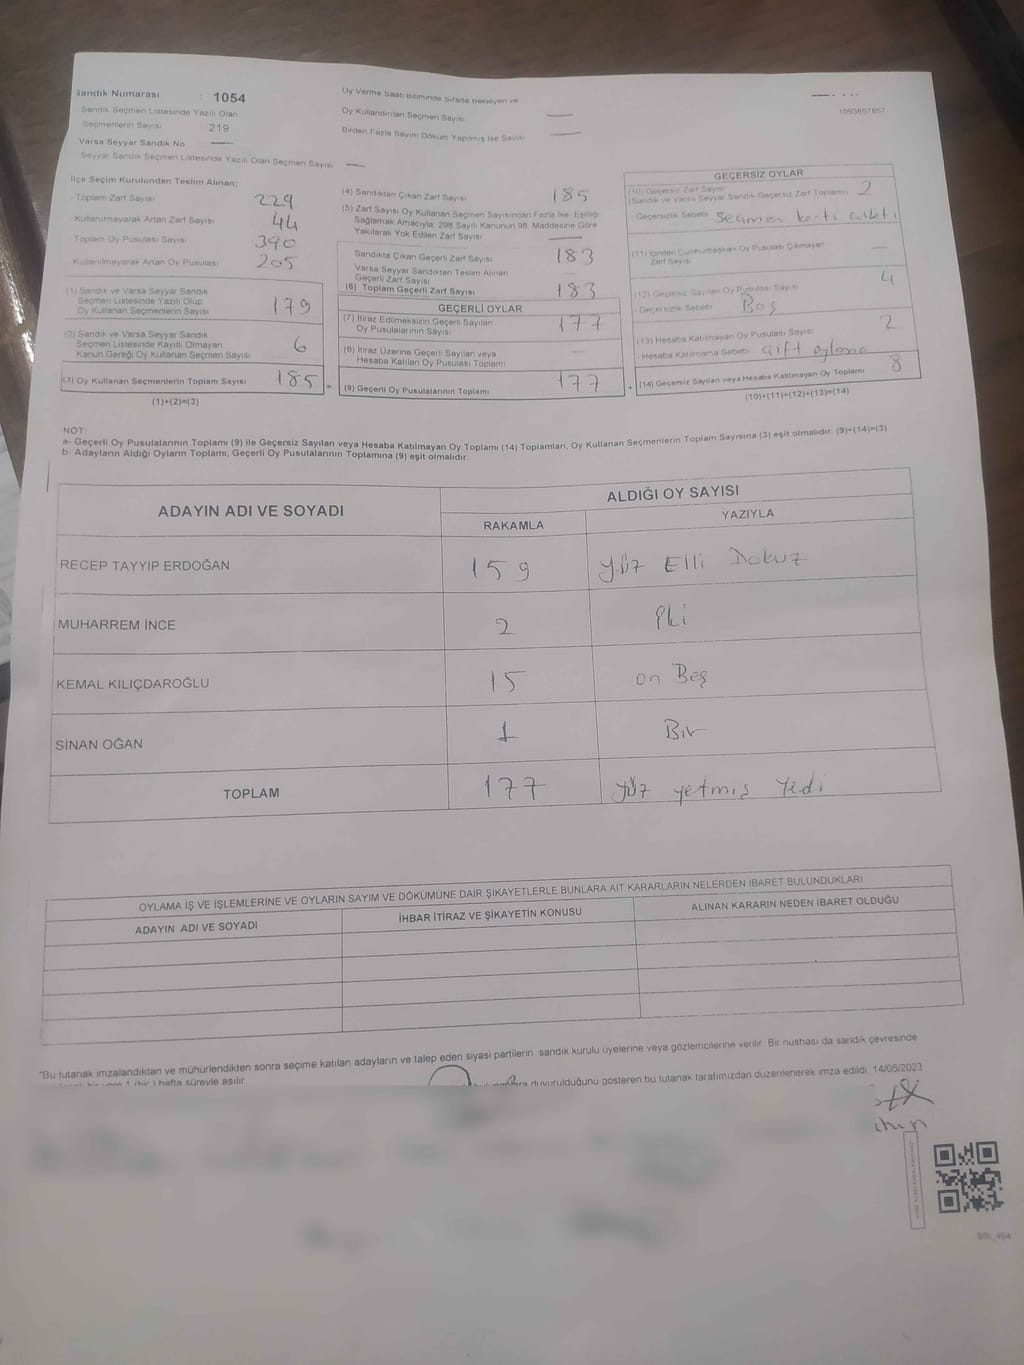 Sandık Numarası : 1054
Sandık Seçmen Listesinde Yazılı Olan
Seçmenlerin Sayısı 219
Varsa Seyyar Sandık No —
Seyyar Sandık Seçmen Listesinde Yazılı Olan Seçmen Sayısı —
Oy Verme Saati Bitiminde Sırada Bekleyen ve
Oy Kullandırılan Seçmen Sayısı —
Birden Fazla Sayım Döküm Yapılmış İse Sayısı —
1093957857
İlçe Seçim Kurulundan Teslim Alınan;
- Toplam Zarf Sayısı 229
- Kullanılmayarak Artan Zarf Sayısı 44
- Toplam Oy Pusulası Sayısı 390
- Kullanılmayarak Artan Oy Pusulası 205
(1) Sandık ve Varsa Seyyar Sandık
Seçmen Listesinde Yazılı Olup
Oy Kullanan Seçmenlerin Sayısı 179
(2) Sandık ve Varsa Seyyar Sandık
Seçmen Listesinde Kayıtlı Olmayan
Kanun Gereği Oy Kullanan Seçmen Sayısı 6
(3) Oy Kullanan Seçmenlerin Toplam Sayısı 185 =
(1)+(2)=(3)
(4) Sandıktan Çıkan Zarf Sayısı 185
(5) Zarf Sayısı Oy Kullanan Seçmen Sayısından Fazla İse, Eşitliği
Sağlamak Amacıyla; 298 Sayılı Kanunun 98. Maddesine Göre
Yakılarak Yok Edilen Zarf Sayısı —
Sandıkta Çıkan Geçerli Zarf Sayısı 183
Varsa Seyyar Sandıktan Teslim Alınan
Geçerli Zarf Sayısı —
(6) Toplam Geçerli Zarf Sayısı 183
GEÇERLİ OYLAR
(7) İtiraz Edilmeksizin Geçerli Sayılan
Oy Pusulalarının Sayısı 177
(8) İtiraz Üzerine Geçerli Sayılan veya
Hesaba Katılan Oy Pusulası Toplamı —
(9) Geçerli Oy Pusulalarının Toplamı 177 +
GEÇERSİZ OYLAR
(10) Geçersiz Zarf Sayısı
(Sandık ve Varsa Seyyar Sandık Geçersiz Zarf Toplamı) 2
- Geçersizlik Sebebi Seçmen kartı
(11) İçinden Cumhurbaşkanı Oy Pusulası Çıkmayan
Zarf Sayısı —
(12) Geçersiz Sayılan Oy Pusulası Sayısı 4
- Geçersizlik Sebebi Boş
(13) Hesaba Katılmayan Oy Pusulası Sayısı 2
- Hesaba Katılmama Sebebi Çift oylama
(14) Geçersiz Sayılan veya Hesaba Katılmayan Oy Toplamı 8
(10)+(11)+(12)+(13)=(14)
NOT:
a- Geçerli Oy Pusulalarının Toplamı (9) ile Geçersiz Sayılan veya Hesaba Katılmayan Oy Toplamı (14) Toplamları, Oy Kullanan Seçmenlerin Toplam Sayısına (3) eşit olmalıdır. (9)+(14)=(3)
b- Adayların Aldığı Oyların Toplamı, Geçerli Oy Pusulalarının Toplamına (9) eşit olmalıdır.
ADAYIN ADI VE SOYADI
ALDIĞI OY SAYISI
RAKAMLA YAZIYLA
RECEP TAYYİP ERDOĞAN 159 yüz Elli Dokuz
MUHARREM İNCE 2 İki
KEMAL KILIÇDAROĞLU 15 on Beş
SİNAN OĞAN 1 Bir
TOPLAM 177 yüz yetmiş Yedi
OYLAMA İŞ VE İŞLEMLERİNE VE OYLARIN SAYIM VE DÖKÜMÜNE DAİR ŞİKAYETLERLE BUNLARA AİT KARARLARIN NELERDEN İBARET BULUNDUKLARI
ADAYIN ADI VE SOYADI İHBAR İTİRAZ VE ŞİKAYETİN KONUSU ALINAN KARARIN NEDEN İBARET OLDUĞU
"Bu tutanak imzalandıktan ve mühürlendikten sonra seçime katılan adayların ve talep eden siyasi partilerin sandık kurulu üyelerine veya gözlemcilerine verilir. Bir nushası da sandık çevresinde
1 (bir) hafta süreyle asılır.
duyurulduğunu gösteren bu tutanak tarafımızdan düzenlenerek imza edildi. 14/05/2023